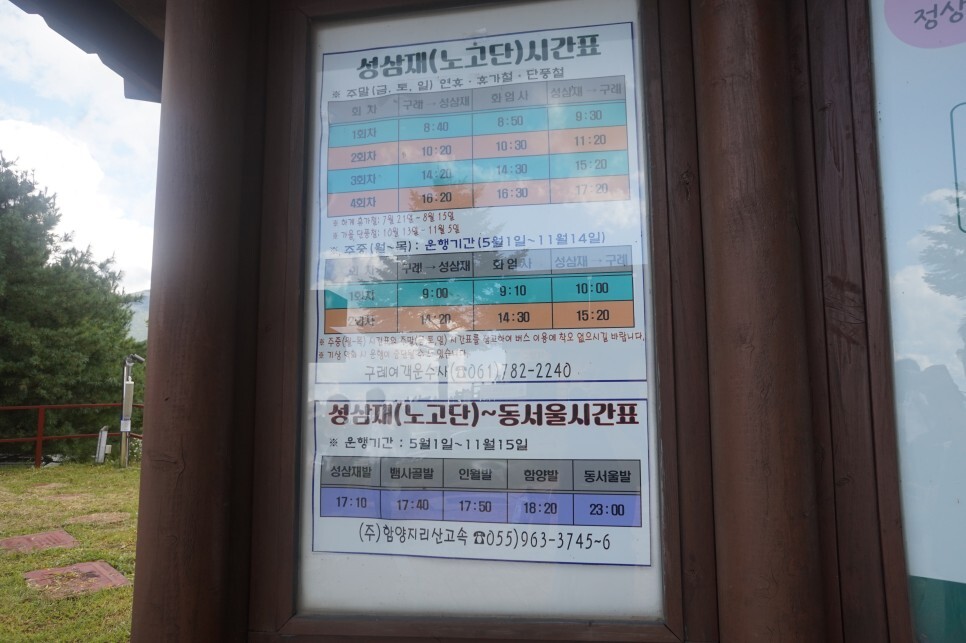 성삼재(노고단)시간표
※ 주말(금, 토, 일) 연휴 · 휴가철 · 단풍철
회 차 구례 → 성삼재 화 엄 사 성삼재 → 구례
1회차 8:40 8:50 9:30
2회차 10:20 10:30 11:20
3회차 14:20 14:30 15:20
4회차 16:20 16:30 17:20
※ 하계 휴가철: 7월 21일 ~ 8월 15일
※ 가을 단풍철: 10월 13일 ~ 11월 5일
※ 주중(월~목) : 운행기간(5월1일~11월14일)
회 차 구례 → 성삼재 화 엄 사 성삼재 → 구례
1회차 9:00 9:10 10:00
2회차 14:20 14:30 15:20
※ 주중(월~목) 시간표와 주말(금,토,일) 시간표를 참고하여 버스 이용에 착오 없으시길 바랍니다.
※ 기상 악화 시 운행이 중단될 수도 있습니다.
구례여객운수사(☎061)782-2240
성삼재(노고단)~동서울시간표
※ 운행기간 : 5월1일~11월15일
성삼재발 뱀사골발 인월발 함양발 동서울발
17:10 17:40 17:50 18:20 23:00
(주)함양지리산고속 ☎055)963-3745~6
정상